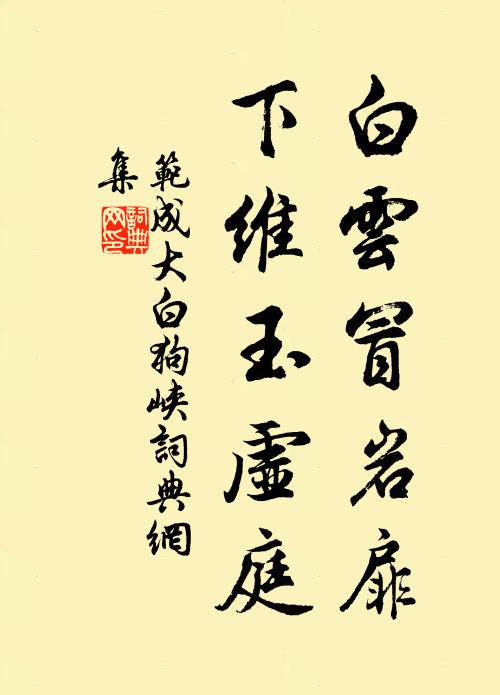 白雲冒岩扉
下維玉虛庭
範成大白狗峽詞典網
集
詞典
网印